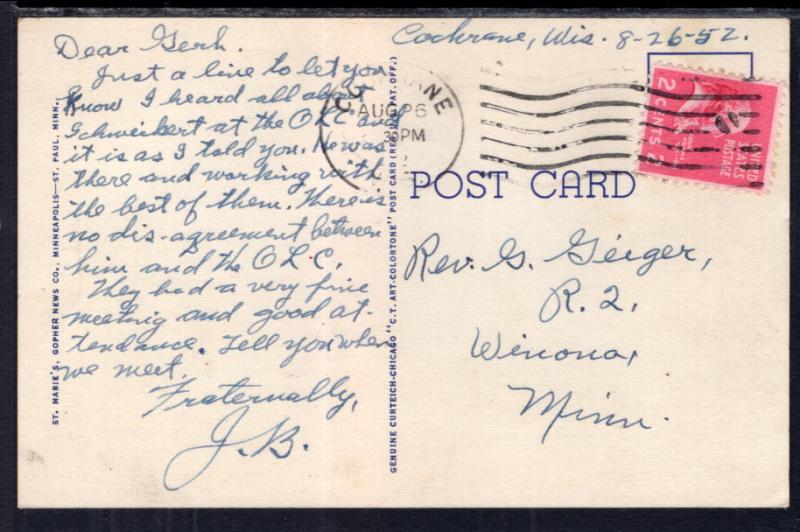 Dear Gerh.
Just a line to let you
know I heard all about
Schweikert at the OLC and
it is as I told you. He was
there and working with
the best of them. There is
no dis-agreement between
him and the OLC.
They had a very fine
meeting and good at-
tendance. Tell you when
we meet.
Fraternally,
J.B.
Cochrane, Wis. 8-26-52.
AUG 26
PM
2 CENTS 2
UNITED
STATES
POSTAGE
POST CARD
Rev. G. Geiger,
R. 2,
Winona,
Minn.
ST. MARIE'S, GOPHER NEWS CO., MINNEAPOLIS—ST. PAUL, MINN.
GENUINE CURTEICH-CHICAGO "C.T. ART-COLORTONE" POST CARD (REG. U.S. PAT. OFF.)